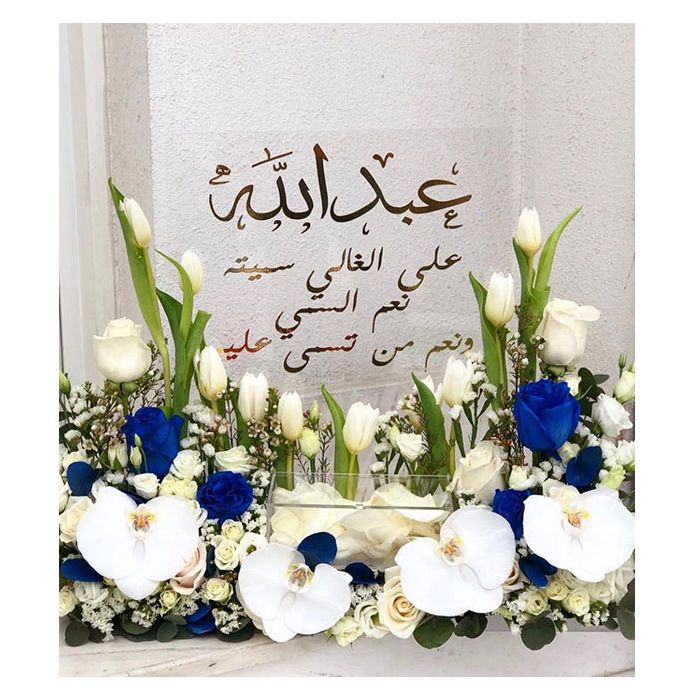 عبدالله
على الغالي سيته
نعم السمي
ونعم من تسمى عليه